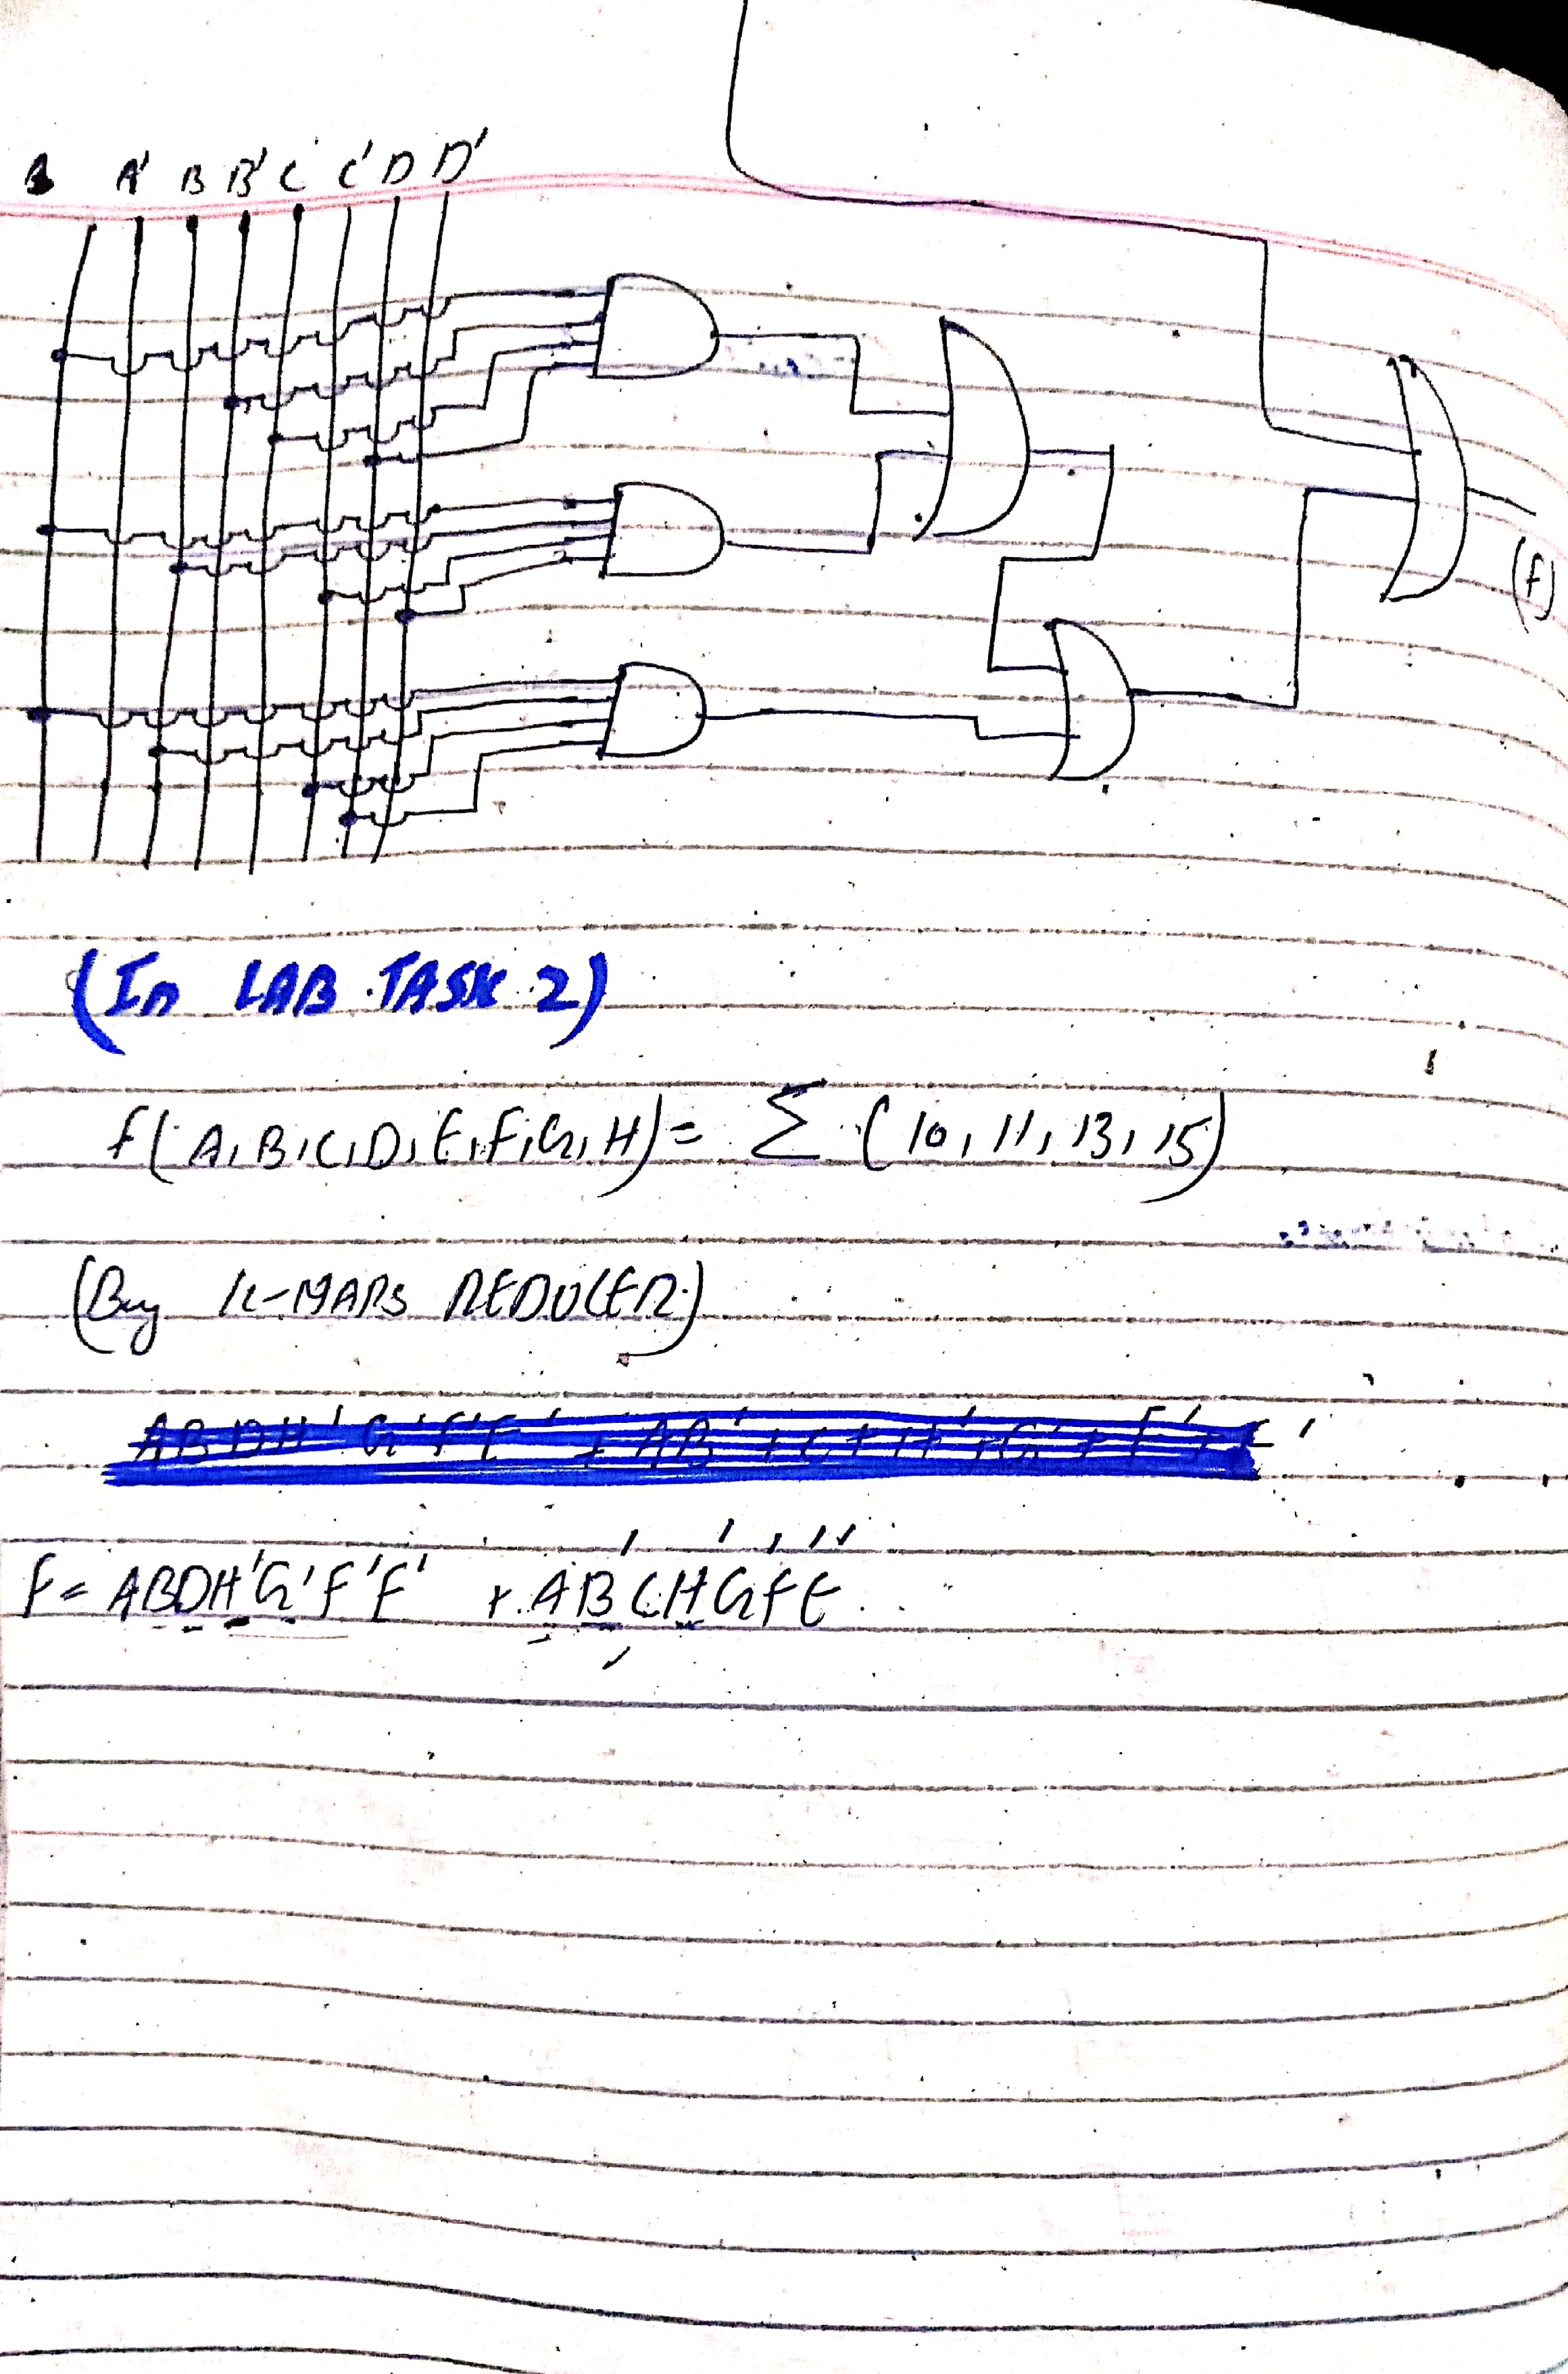 A A' B B' C C' D D'
(f)
(In LAB TASK 2)
f(A,B,C,D,E,F,G,H) = Σ (10, 11, 13, 15)
(By K-MAPs REDUCER)
F = ABDH'G'F'E' + AB'CH'G'F'E'